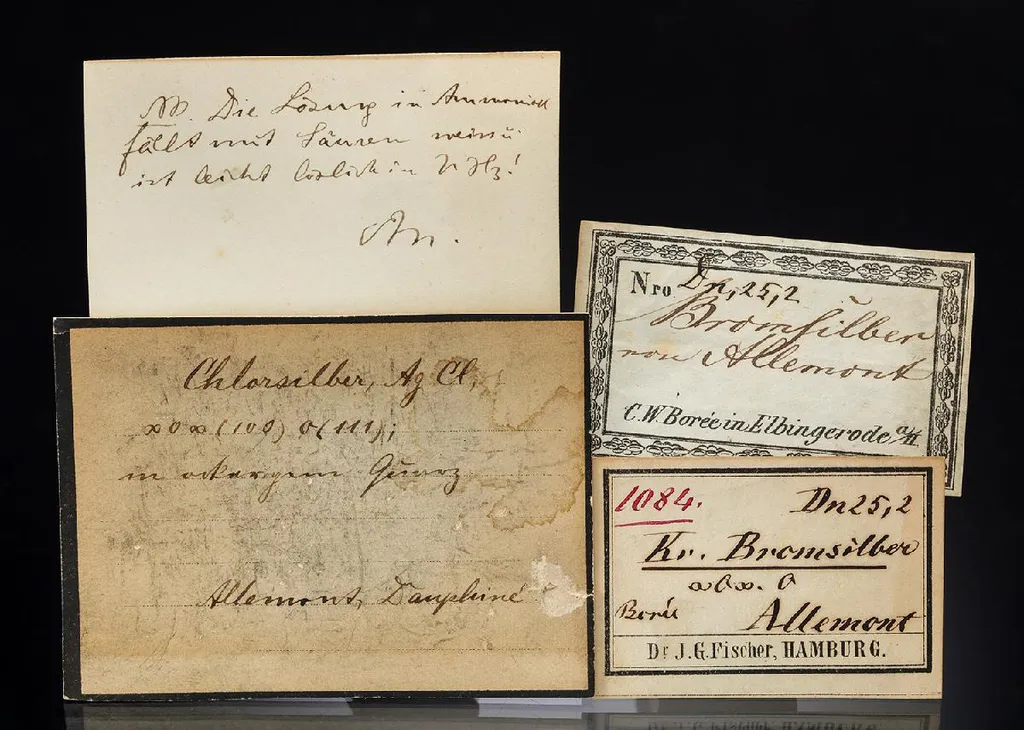 NB. Die Lösung in Ammoniak
fällt mit Säuren weiss u.
ist leicht löslich in NH3!
Chlorsilber, Ag Cl,
∞O∞ (100) O(111);
in ockergem Quarz
Allemont, Dauphiné
Nro Dn, 25, 2
Bromsilber
von Allemont
C.W. Borée in Elbingerode a/H
1084. Dn 25, 2
Kr. Bromsilber
∞O∞. O
Borée Allemont
Dr J.G. Fischer, HAMBURG.